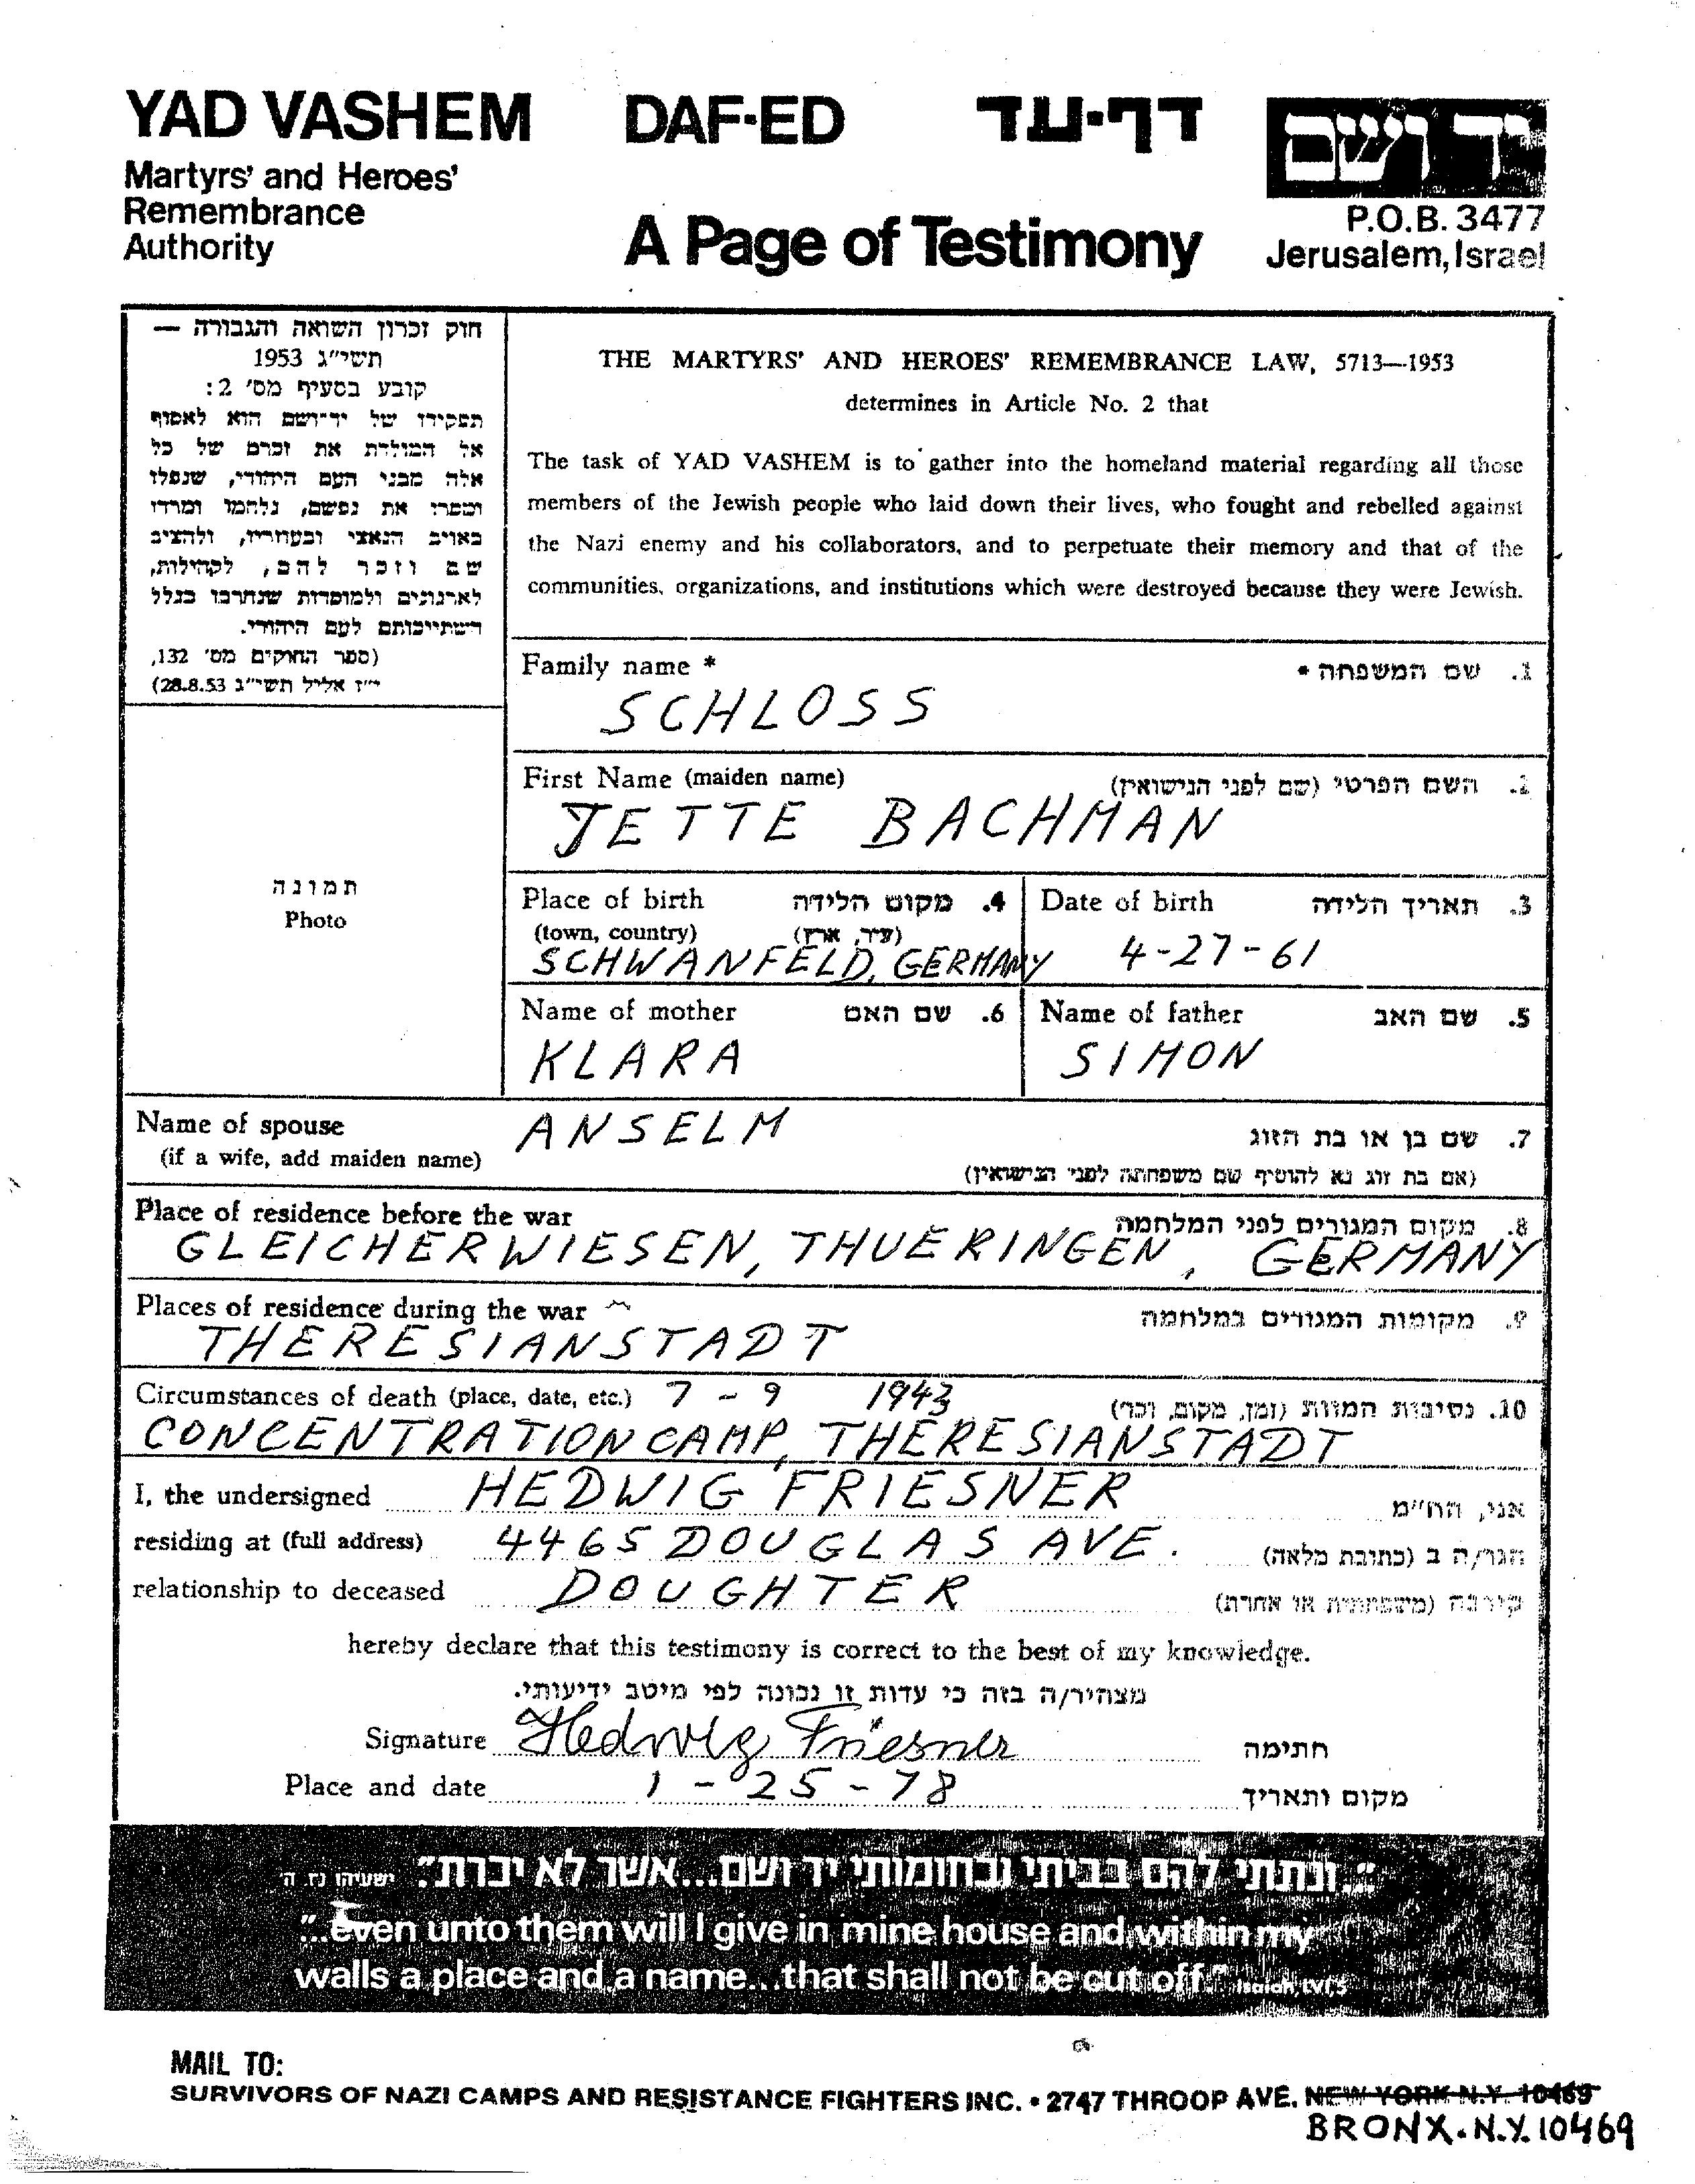 YAD VASHEM DAF-ED דף-עד יד ושם
Martyrs' and Heroes'
Remembrance
Authority
A Page of Testimony
P.O.B. 3477
Jerusalem, Israel
חוק זכרון השואה והגבורה —
תשי"ג 1953
קובע בסעיף מס' 2:
תפקידו של יד-ושם הוא לאסוף
אל המולדת את זכרם של כל
אלה מבני העם היהודי, שנפלו
ומסרו את נפשם, נלחמו ומרדו
באויב הנאצי ובעוזריו, ולהציב
שם וזכר להם, לקהילות,
לארגונים ולמוסדות שנחרבו בגלל
השתייכותם לעם היהודי.
(ספר החוקים מס' 132,
י"ז אלול תשי"ג 28.8.53)
THE MARTYRS' AND HEROES' REMEMBRANCE LAW, 5713—1953
determines in Article No. 2 that
The task of YAD VASHEM is to gather into the homeland material regarding all those
members of the Jewish people who laid down their lives, who fought and rebelled against
the Nazi enemy and his collaborators, and to perpetuate their memory and that of the
communities, organizations, and institutions which were destroyed because they were Jewish.
Family name * 1. שם המשפחה *
SCHLOSS
First Name (maiden name) 2. השם הפרטי (שם לפני הנישואין)
JETTE BACHMAN
תמונה
Photo
Place of birth 4. מקום הלידה
(town, country) (עיר, ארץ)
SCHWANFELD, GERMANY
Date of birth 3. תאריך הלידה
4-27-61
Name of mother 6. שם האם
KLARA
Name of father 5. שם האב
SIMON
Name of spouse ANSELM 7. שם בן או בת הזוג
(if a wife, add maiden name) (אם בת זוג נא להוסיף שם משפחתה לפני הנישואין)
Place of residence before the war 8. מקום המגורים לפני המלחמה
GLEICHERWIESEN, THUERINGEN, GERMANY
Places of residence during the war 9. מקומות המגורים במלחמה
THERESIANSTADT
Circumstances of death (place, date, etc.) 7 - 9 1943 10. נסיבות המוות (זמן, מקום, וכו')
CONCENTRATION CAMP, THERESIANSTADT
I, the undersigned HEDWIG FRIESNER אני, הח"מ
residing at (full address) 4465 DOUGLAS AVE. הגר/ה ב (כתובת מלאה)
relationship to deceased DOUGHTER קירבה (משפחתית או אחרת)
hereby declare that this testimony is correct to the best of my knowledge.
מצהיר/ה בזה כי עדות זו נכונה לפי מיטב ידיעותי.
Signature Hedwig Friesner חתימה
Place and date 1 - 25 - 78 מקום ותאריך
"...ונתתי להם בביתי ובחומותי יד ושם...אשר לא יכרת." ישעיהו נו ה
"...even unto them will I give in mine house and within my
walls a place and a name...that shall not be cut off." Isaiah, LVI,5
MAIL TO:
SURVIVORS OF NAZI CAMPS AND RESISTANCE FIGHTERS INC. • 2747 THROOP AVE. NEW YORK N.Y. 10469
BRONX. N.Y. 10469